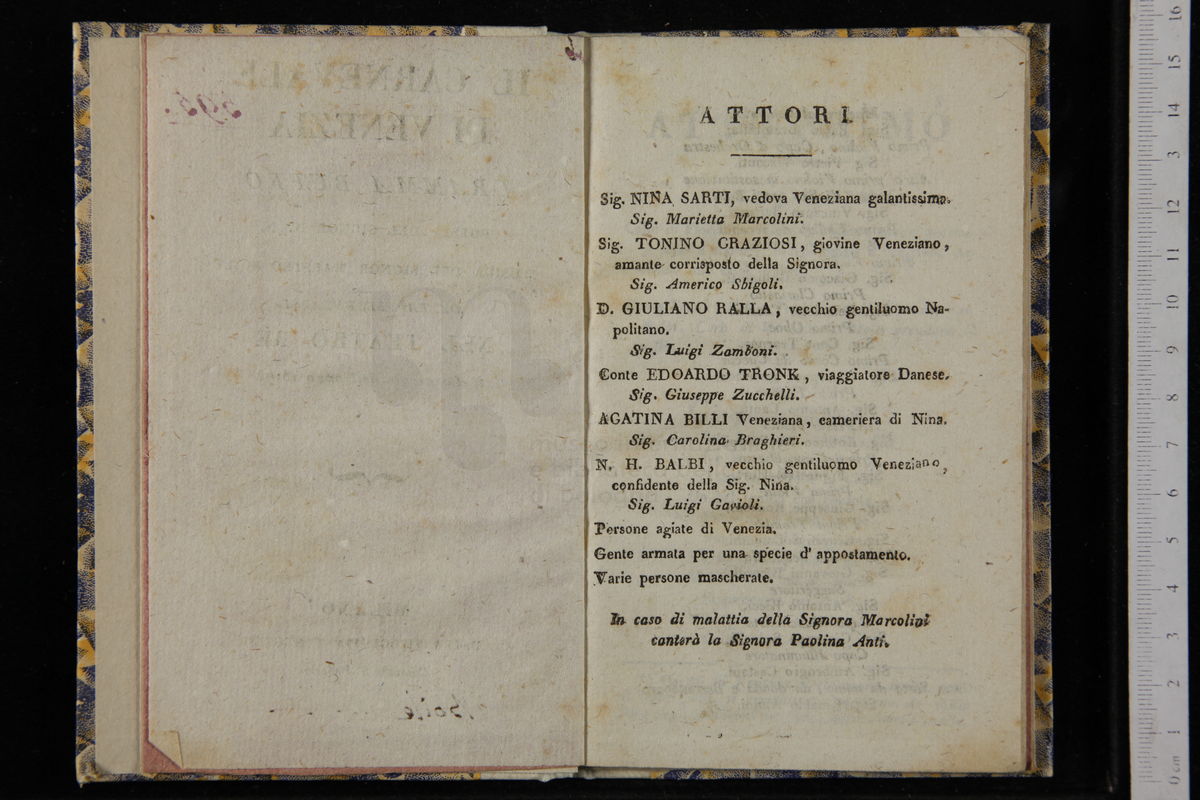 ATTORI.
Sig. NINA SARTI, vedova Veneziana galantissima.
Sig. Marietta Marcolini.
Sig. TONINO GRAZIOSI, giovine Veneziano,
amante corrisposto della Signora.
Sig. Americo Sbigoli.
D. GIULIANO RALLA, vecchio gentiluomo Na-
politano.
Sig. Luigi Zamboni.
Conte EDOARDO TRONK, viaggiatore Danese.
Sig. Giuseppe Zucchelli.
AGATINA BILLI Veneziana, cameriera di Nina.
Sig. Carolina Braghieri.
N. H. BALBI, vecchio gentiluomo Veneziano,
confidente della Sig. Nina.
Sig. Luigi Gavioli.
Persone agiate di Venezia.
Gente armata per una specie d' appostamento.
Varie persone mascherate.
In caso di malattia della Signora Marcolini
canterà la Signora Paolina Anti.